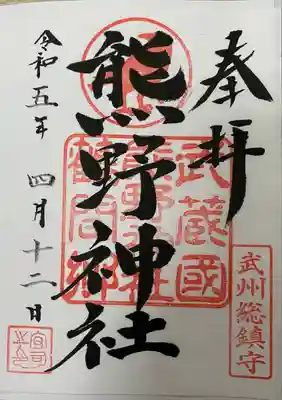 奉拝
武州総鎮守
熊野神社
武蔵國
熊野神社
鶴間郷
令和五年 四月十二日
宮司之印